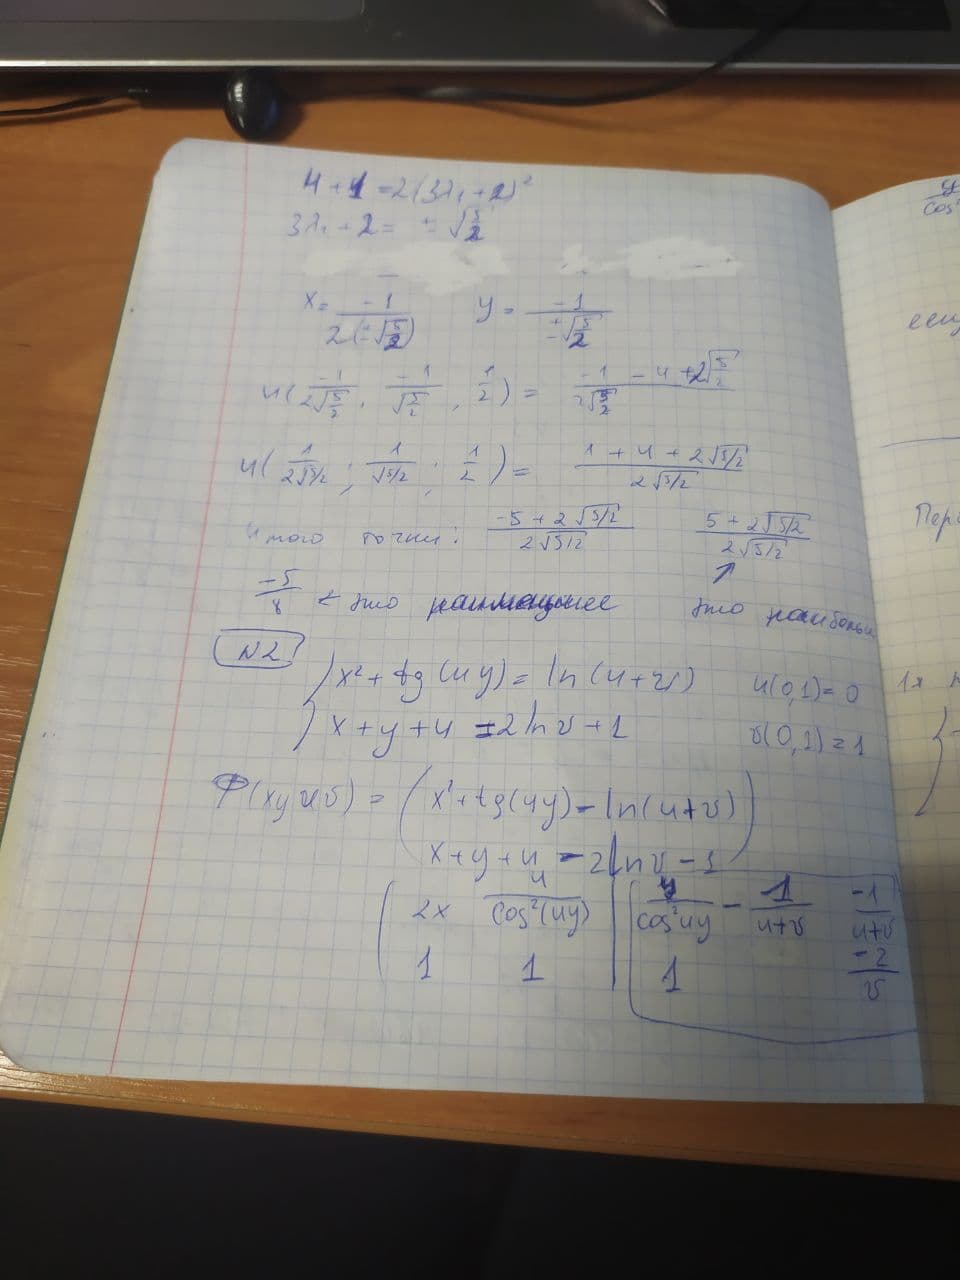 4 + 1 = 2(3λ₁ + 2)²
3λ₁ + 2 = ± √(5/2)
x = -1/(2(±√(5/2))) y = -1/(±√(5/2))
u(-1/(2√(5/2)), -1/√(5/2), 1/2) = (-1 - 4 + 2√(5/2))/(2√(5/2))
u(1/(2√5/2); 1/√5/2; 1/2) = (1 + 4 + 2√5/2)/(2√5/2)
Итого точки: (-5 + 2√5/2)/(2√5/2) (5 + 2√5/2)/(2√5/2)
-5/8 ← это наименьшее это наибольш
N2
{ x² + tg(uy) = ln(u+v) u(0,1) = 0
x + y + u = 2 ln v + 1 v(0,1) = 1
Ф(xyuv) = ( x² + tg(uy) - ln(u+v)
x + y + u - 2 ln v - 1 )
( 2x u/cos²(uy) | y/cos²uy - 1/(u+v) -1/(u+v)
1 1 | 1 -2/v
y/cos²
1x